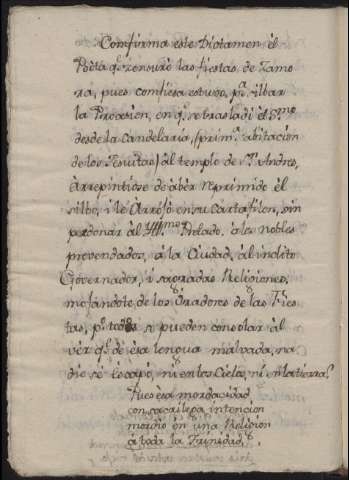 Comfirma este Dictamen èl
Poèta q.e zensurò las fiestas, de Zamo
ra, pues comfiesa estuvo, p.a silbar
la Prozesion, en q.e se trasladò èl S.mo
desde la Candelaria, (prim.a abitacion
de los Jesuitas) àl templo de S.n Andres,
àrrepintiose de àber reprimido èl
silbo, i le àrrojò en su Cartafilon, sin
perdonar àl Yll.mo Prelado, à los nobles
provendador, à la Ciudad, àl inclito
Governador, i sagradas Religiones,
mofandose de los Oradores de las Fies
tas, p.o todos se pueden consolar àl
vèr q.e de esa lengua malvada, na
die se escapò, ni en los Cielos, ni en la tierra.
Pues esa mordacidad
con sacrilega intencion
mordio en una Religion
à toda la Trinidad,